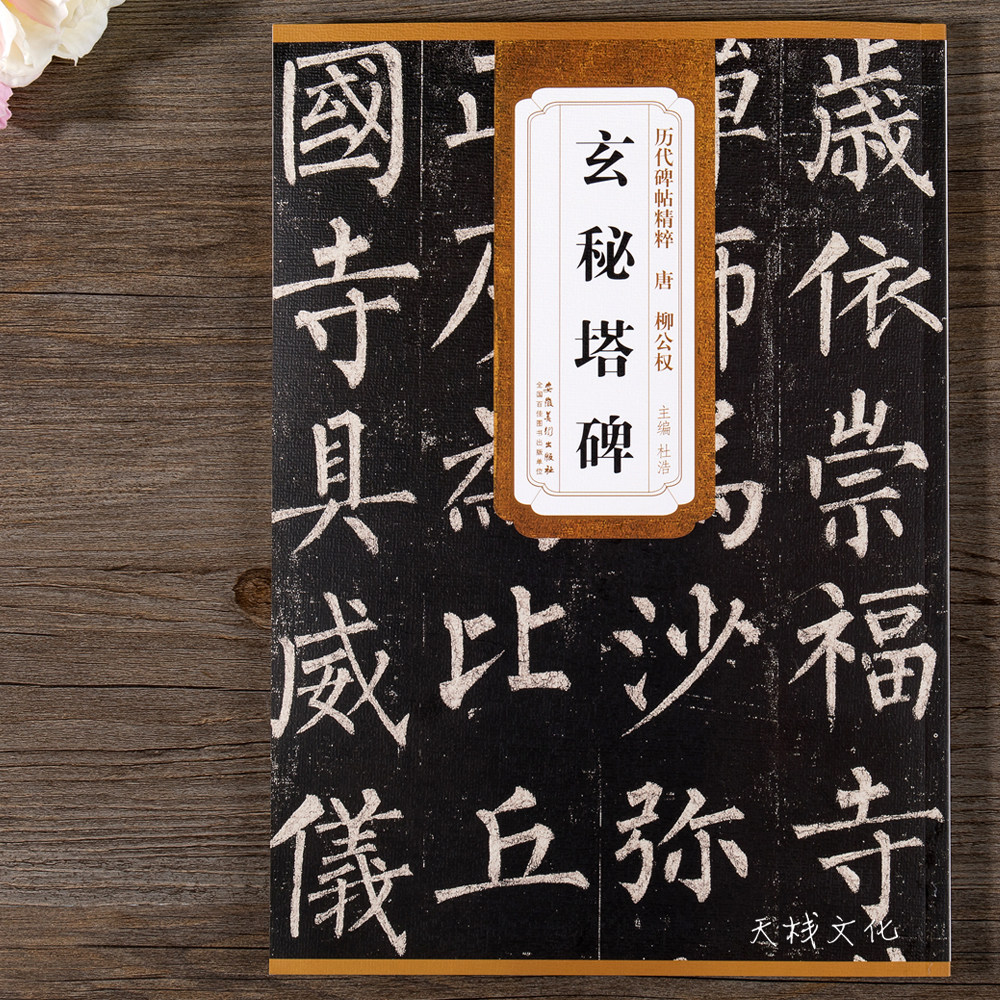 歲依崇福寺
沙弥
比丘
國寺具威儀
历代碑帖精粹 唐 柳公权 主编 杜浩
玄秘塔碑
安徽美术出版社
全国百佳图书出版单位
天栈文化